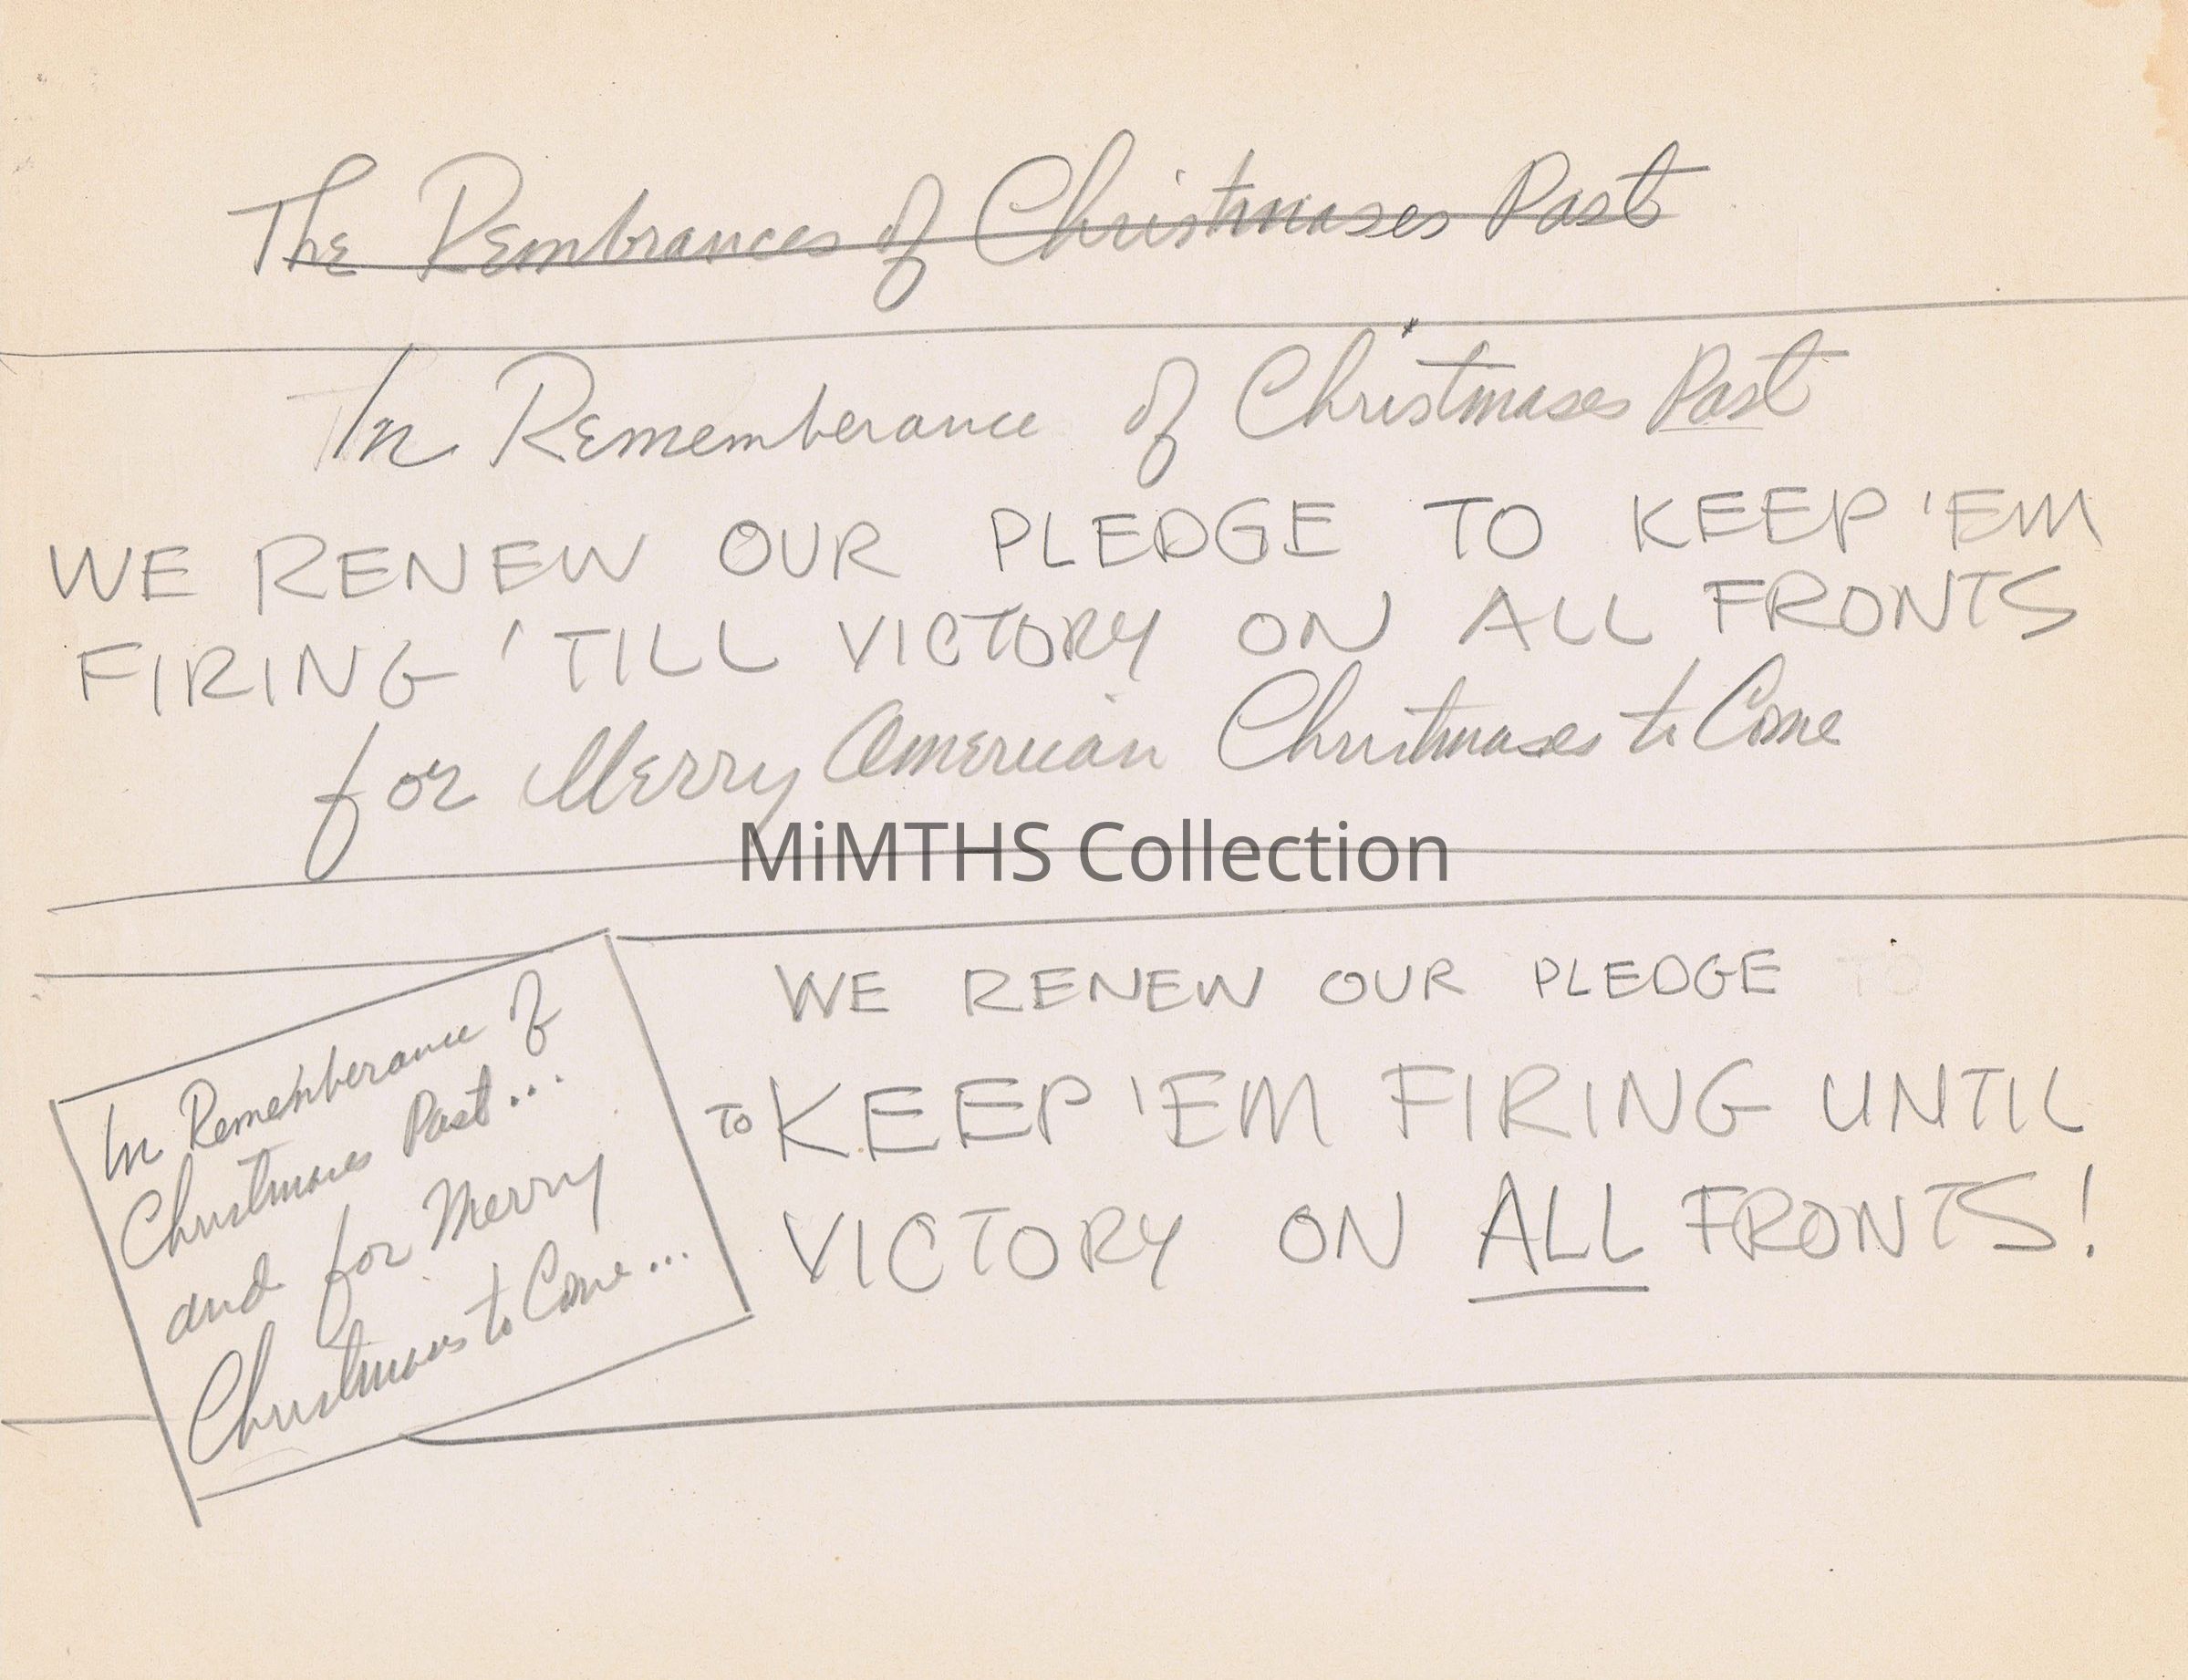 The Rembrances of Christmases Past
In Rememberance of Christmases Past
WE RENEW OUR PLEDGE TO KEEP 'EM
FIRING 'TILL VICTORY ON ALL FRONTS
for Merry American Christmases to Come
MiMTHS Collection
In Rememberance of
Christmases Past...
and for Merry
Christmases to Come...
WE RENEW OUR PLEDGE TO
TO KEEP 'EM FIRING UNTIL
VICTORY ON ALL FRONTS!